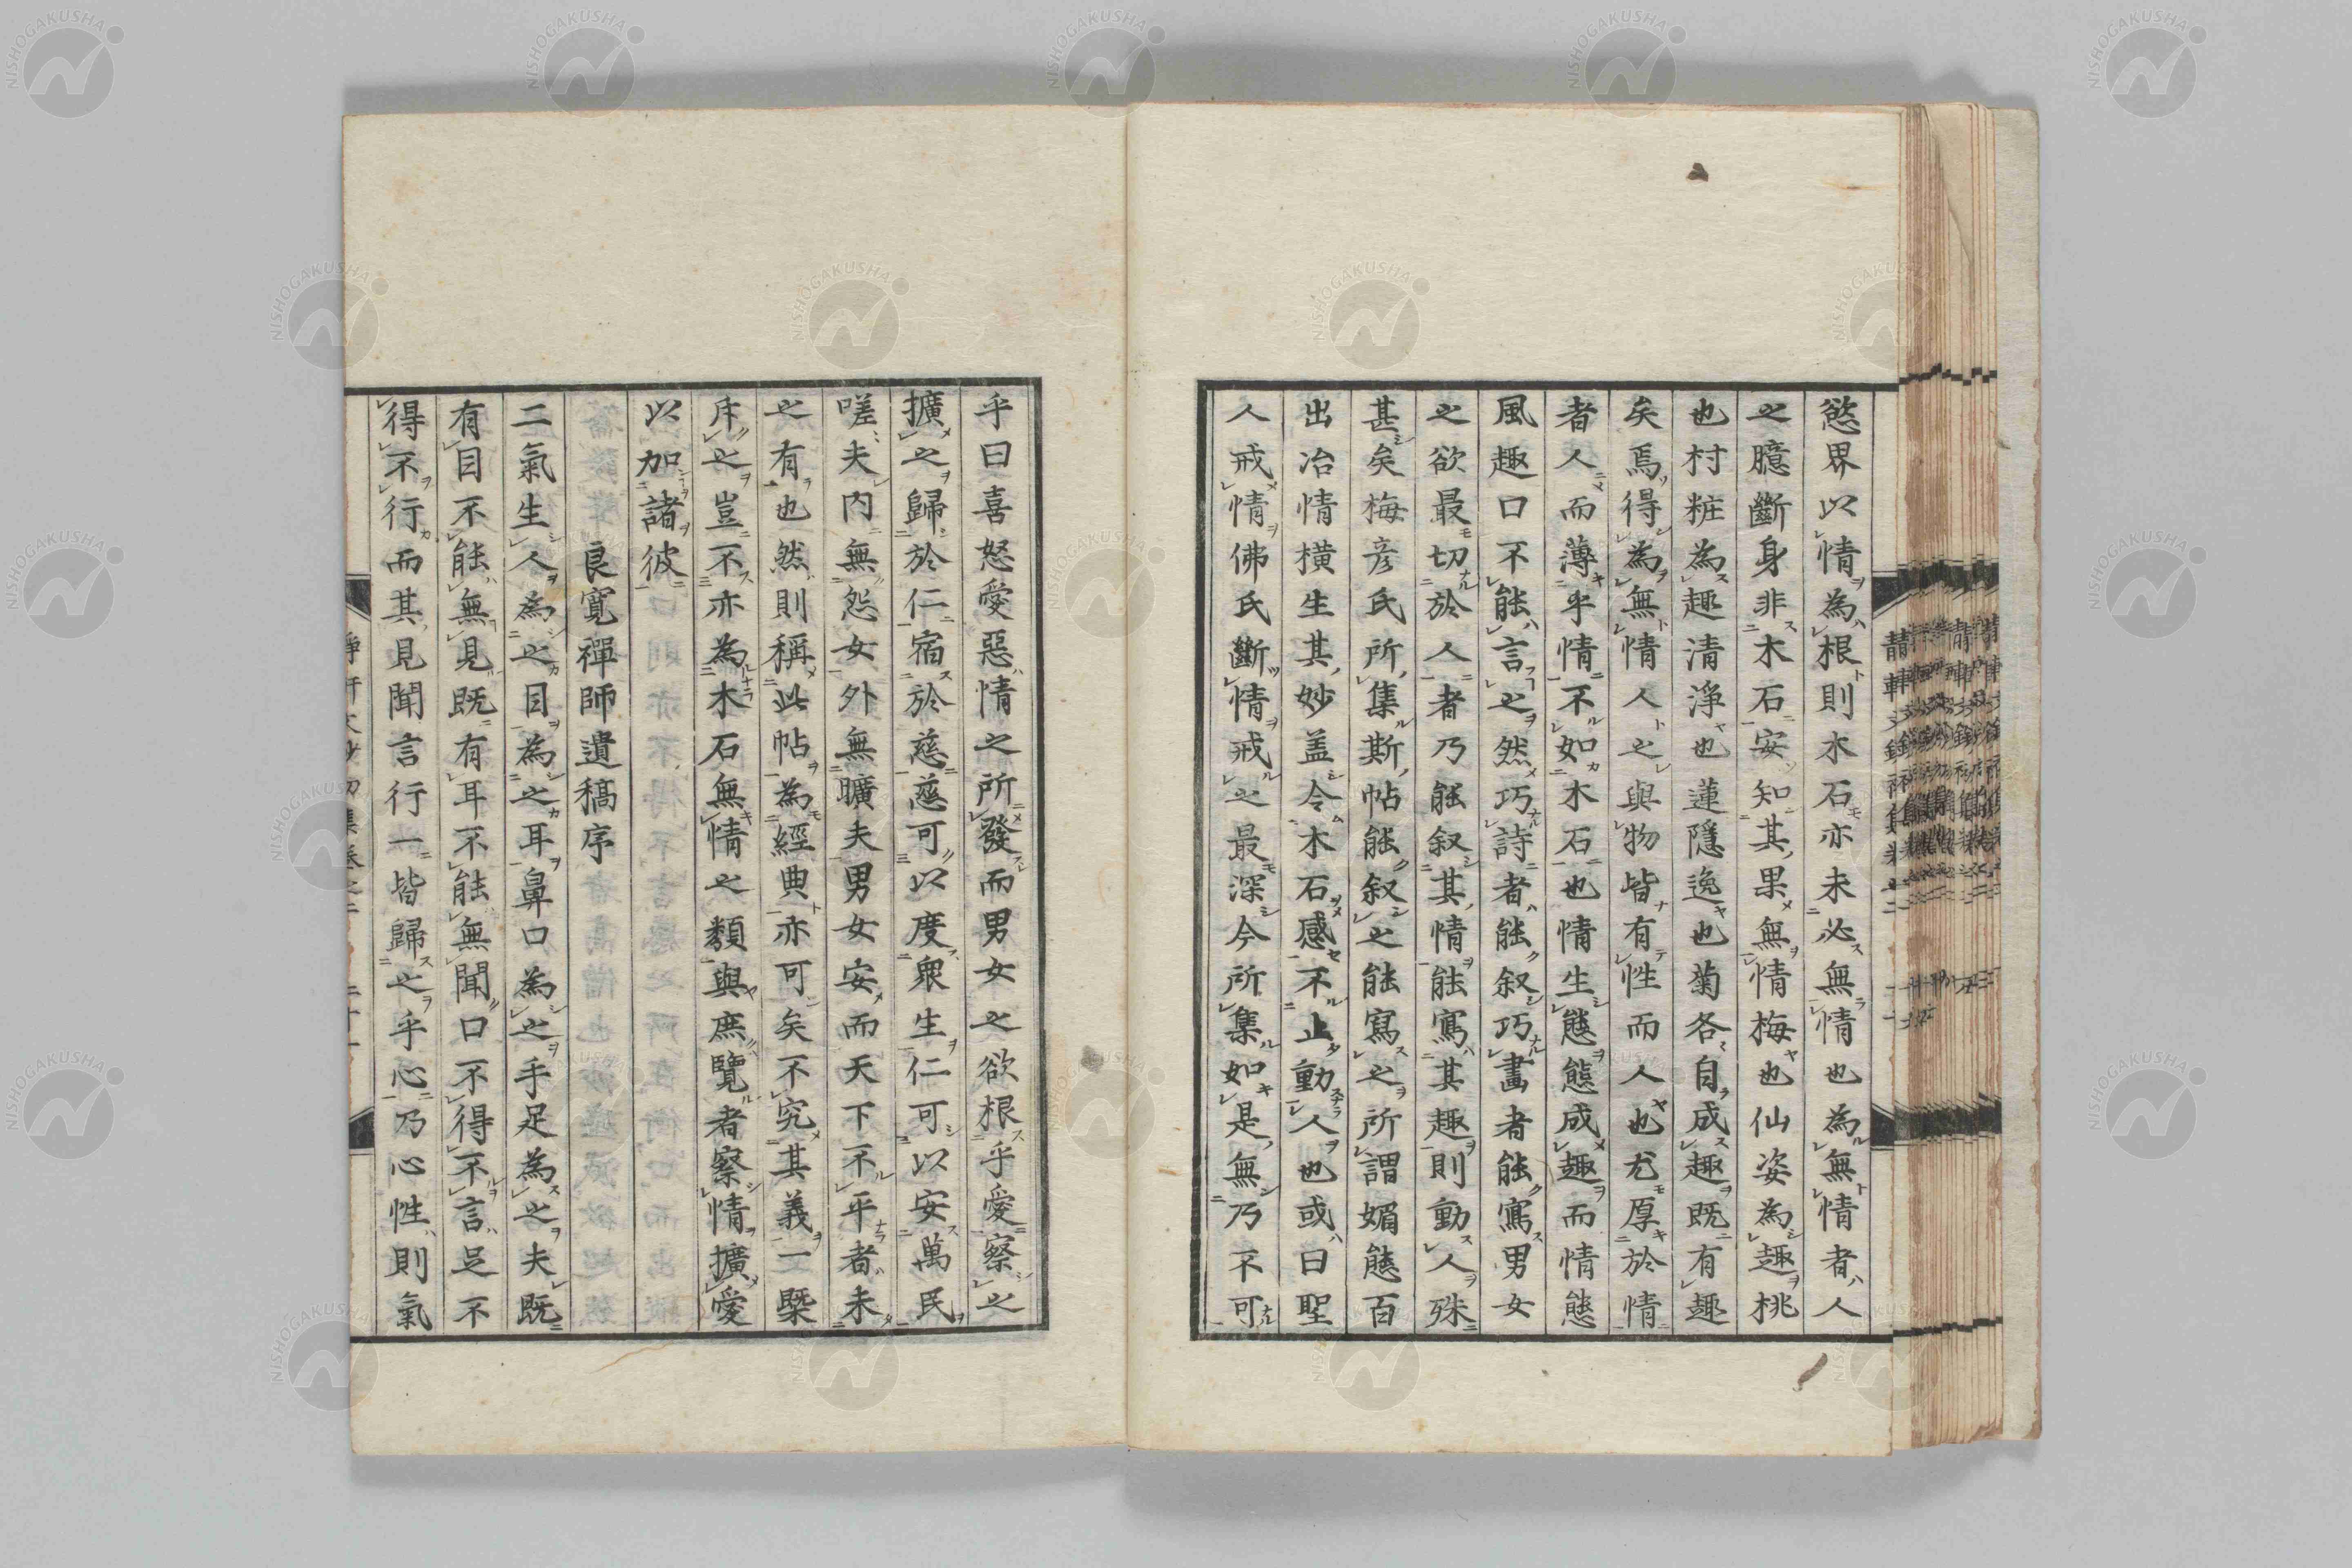 慾界以情為根則木石亦未必無情也為無情者人
之臆斷身非木石安知其果無情梅也仙姿為趣桃
也村粧為趣清淨也蓮隱逸也菊各自成趣既有趣
矣焉得為無情人之與物皆有性而人也尤厚於情
者人而薄乎情不如木石也情生態態成趣而情態
風趣口不能言之然巧詩者能叙巧畫者能寫男女
之欲最切於人者乃能叙其情能寫其趣則動人殊
甚矣梅彦氏所集斯帖能叙之能寫之所謂媚態百
出冶情橫生其妙盖令木石感不止動人也或曰聖
人戒情佛氏斷情戒之最深今所集如是無乃不可
乎曰喜怒愛惡情之所發而男女之欲根乎愛察之
擴之歸於仁宿於慈慈可以度衆生仁可以安萬民
嗟夫内無怨女外無曠夫男女安而天下不平者未
之有也然則稱此帖為經典亦可矣不究其義一槩
斥之豈不亦為木石無情之類與庶覽者察情擴愛
以加諸彼
良寛禪師遺稿序
二氣生人為之目為之耳鼻口為之手足為之夫既
有目不能無見既有耳不能無聞口不得不言足不
得不行而其見聞言行一皆歸之乎心乃心性則氣